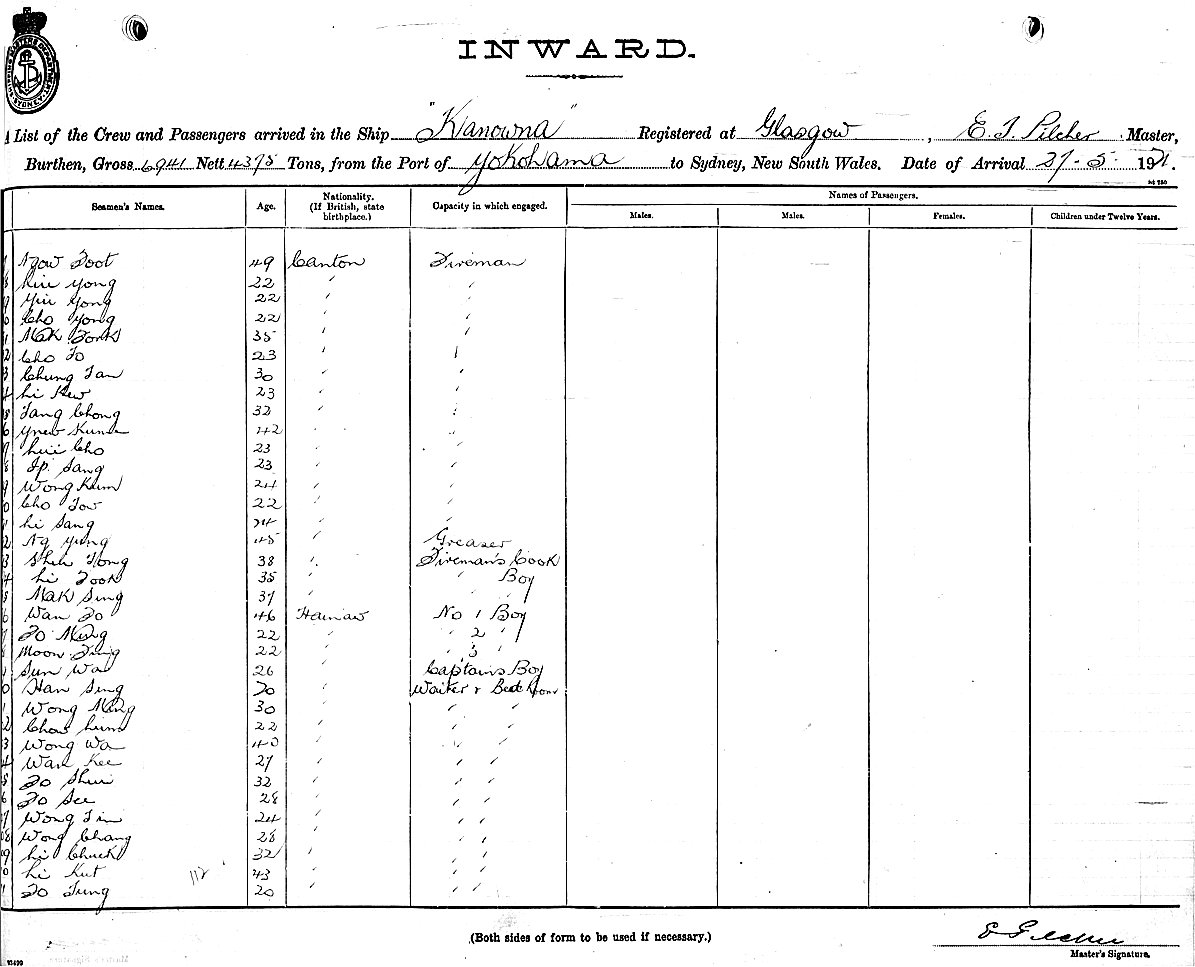 SHIPPING MASTER'S DEPARTMENT SYDNEY
INWARD.
A List of the Crew and Passengers arrived in the Ship "Kanowna" Registered at Glasgow, E. J. Pilcher Master,
Burthen, Gross 6941 Nett 4375 Tons, from the Port of Yokohama to Sydney, New South Wales. Date of Arrival 27-5 1921.
Seamen's Names. Age. Nationality. (If British, state birthplace.) Capacity in which engaged. Names of Passengers.
Males. Males. Females. Children under Twelve Years.
Foot 49 Canton Fireman
Yong 22 " "
Yiu Yong 22 " "
Cho Yong 22 " "
Mak 35 " "
Cho To 23 " "
Chung Tan 30 " "
Li Kew 23 " "
Tang Chong 32 " "
42 " "
Cho 23 " "
Ip Sang 23 " "
Wong Kum 24 " "
Cho Tow 22 " "
Li Sang " "
Ng Yung 45 " Greaser
Shek Tong 38 " Fireman's Cook
Li Fook 35 " " Boy
Mak Sing 37 "
Wan Fo 46 Hainaw No 1 Boy
Fo Ming 22 " " 2 "
Moon Ting 22 " " 3 "
Sun Wa 26 " Captains Boy
Han Sing 20 " Waiter & Bed Room
Wong Ming 30 " " "
Chow Lum 22 " " "
Wong Wa 40 " " "
Wan Kee 27 " " "
Fo Shui 32 " " "
Fo See 28 " " "
Wong Tin 24 " " "
Wong Chang 28 " " "
Li Chuck 32 " " "
Li Kut 112 43 " " "
Fo Tung 20 " " "
(Both sides of form to be used if necessary.)
E J Pilcher
Master's Signature.